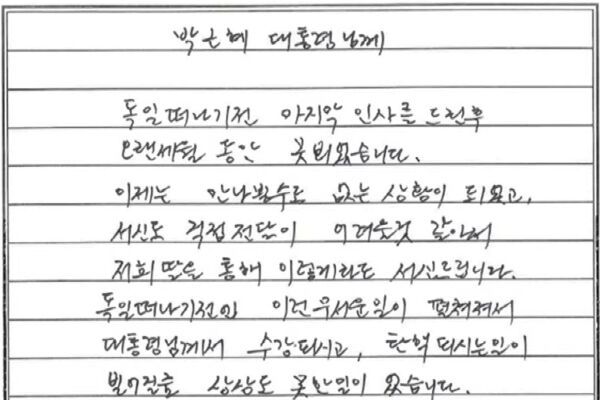 박근혜 대통령님께
독일떠나기전 마지막 인사를 드린후
오랜세월 동안 못뵈었습니다.
이제는 만나뵐수도 없는 상황이 되었고,
서신도 직접전달이 어려울것 같아서
저희 딸을 통해 이렇게라도 서신드립니다.
독일떠나기전엔 이런 무서운일이 펼쳐져서
대통령님께서 수감되시고, 탄핵되시는일이
벌어질줄 상상도 못한일이 었습니다.